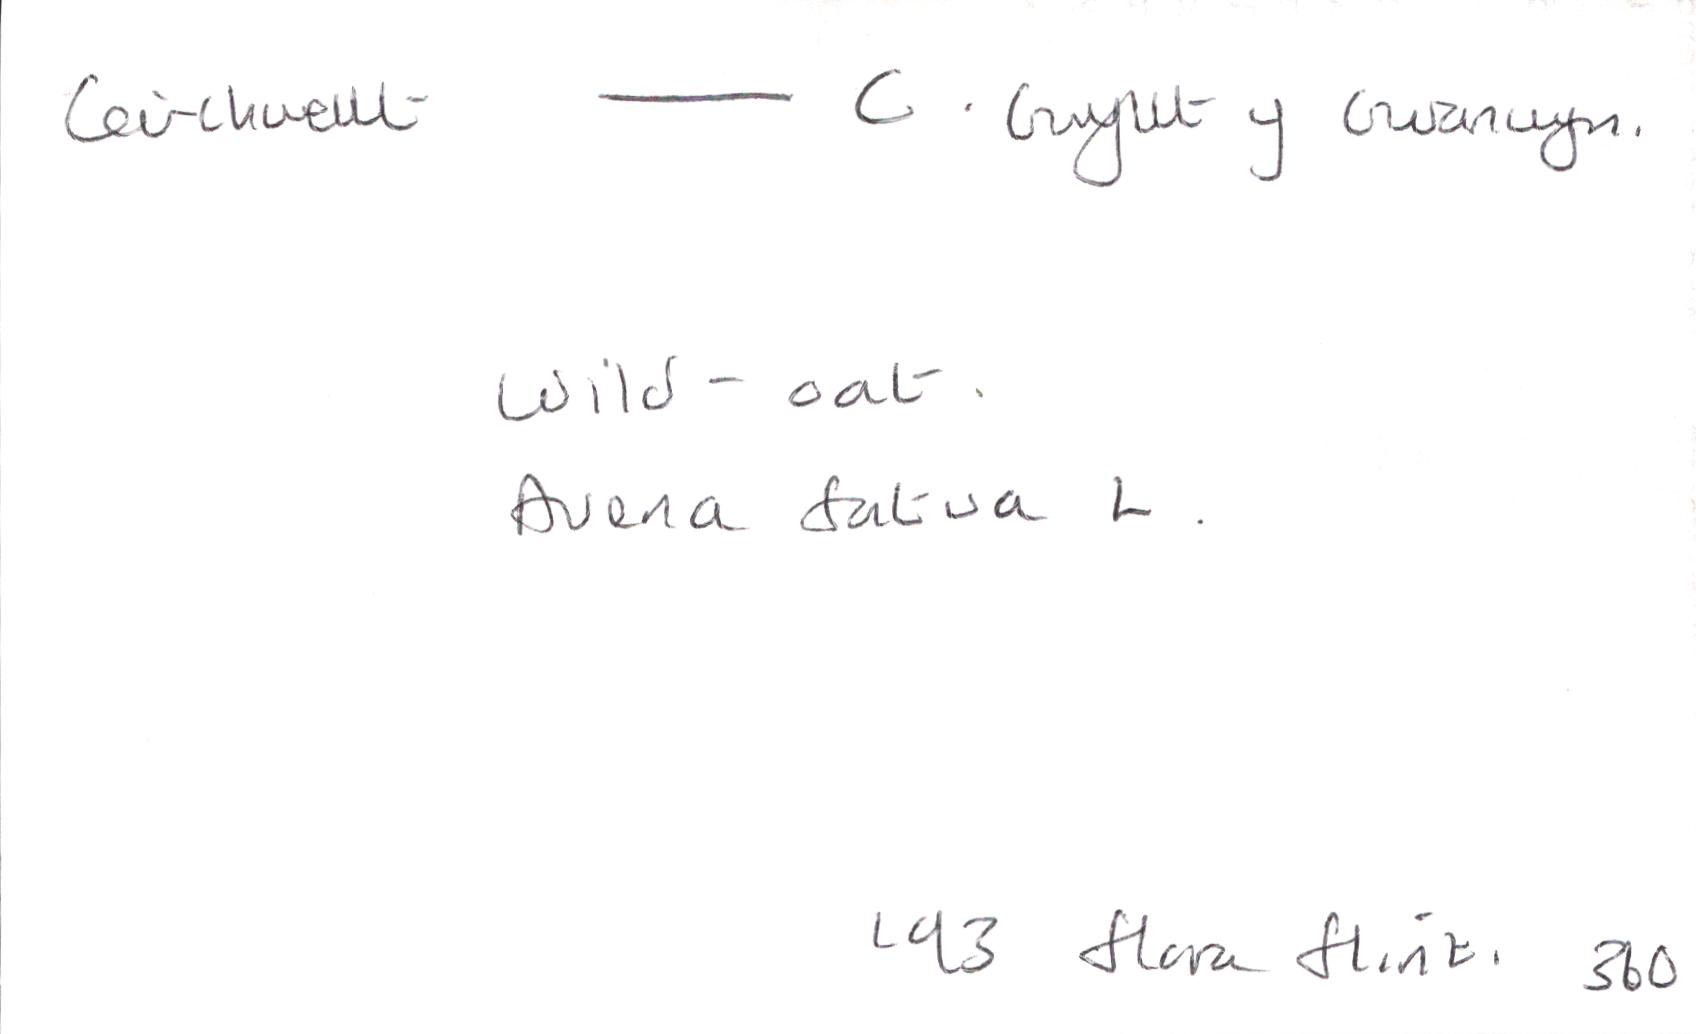 Ceirchwellt — C. Gwyllt y Gwanwyn.
Wild-oat.
Avena sativa L.
'93 Flora Flint. 360